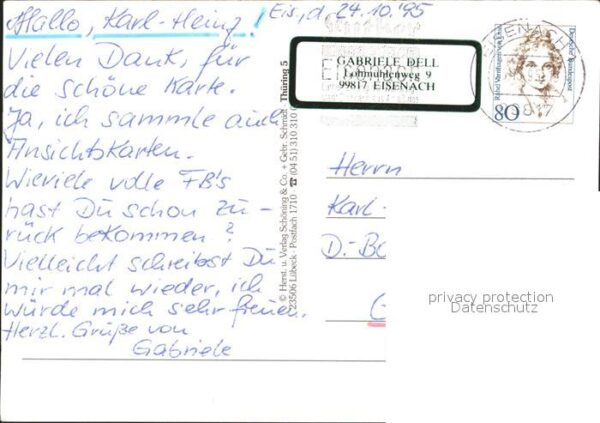 Hallo, Karl-Heinz! Eis, d. 24.10.'95
Vielen Dank, für
die schöne Karte.
Ja, ich sammle auch
Ansichtskarten.
Wieviele volle FB's
hast Du schon zu-
rück bekommen?
Vielleicht schreibst Du
mir mal wieder, ich
würde mich sehr freuen.
Herzl. Grüße von
Gabriele
GABRIELE DELL
Lohmühlenweg 9
99817 EISENACH
EISENACH
99817
Deutsche Bundespost
Rahel Varnhagen von Ense
80
Thüring 5
© Herst. u. Verlag Schöning & Co. + Gebr. Schmidt
23506 Lübeck · Postfach 1710 · ☎ (04 51) 310 310
Herrn
Karl-
D.-Bo
privacy protection
Datenschutz